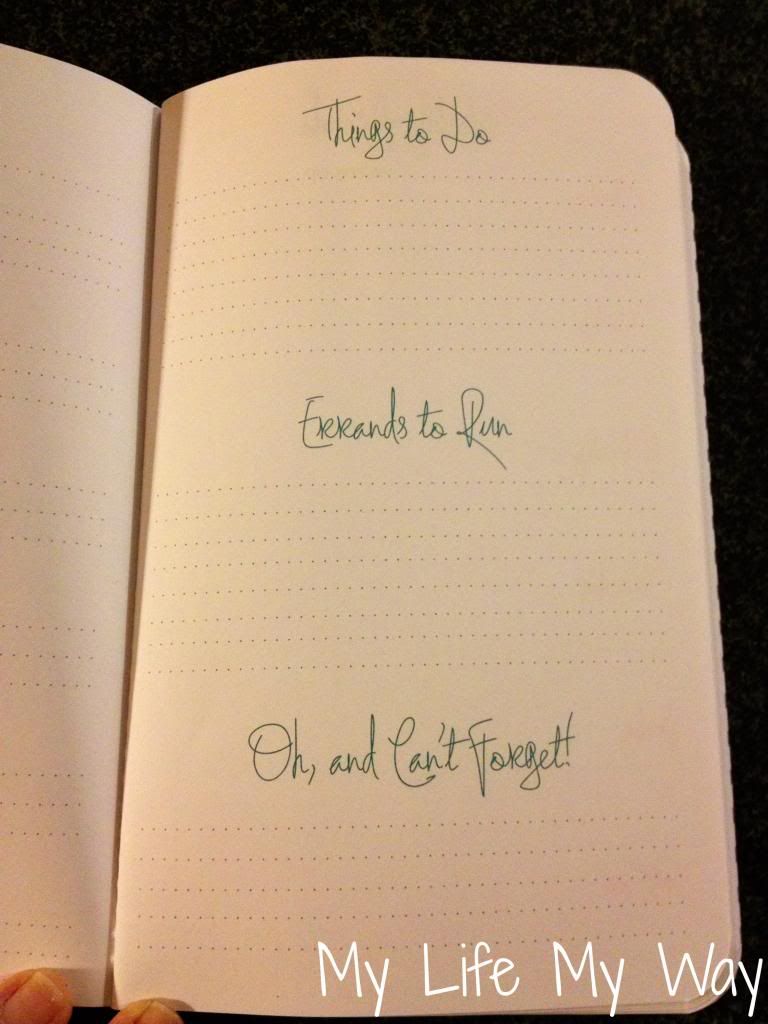 Things to Do
Errands to Run
Oh, and Can't Forget!
My Life My Way